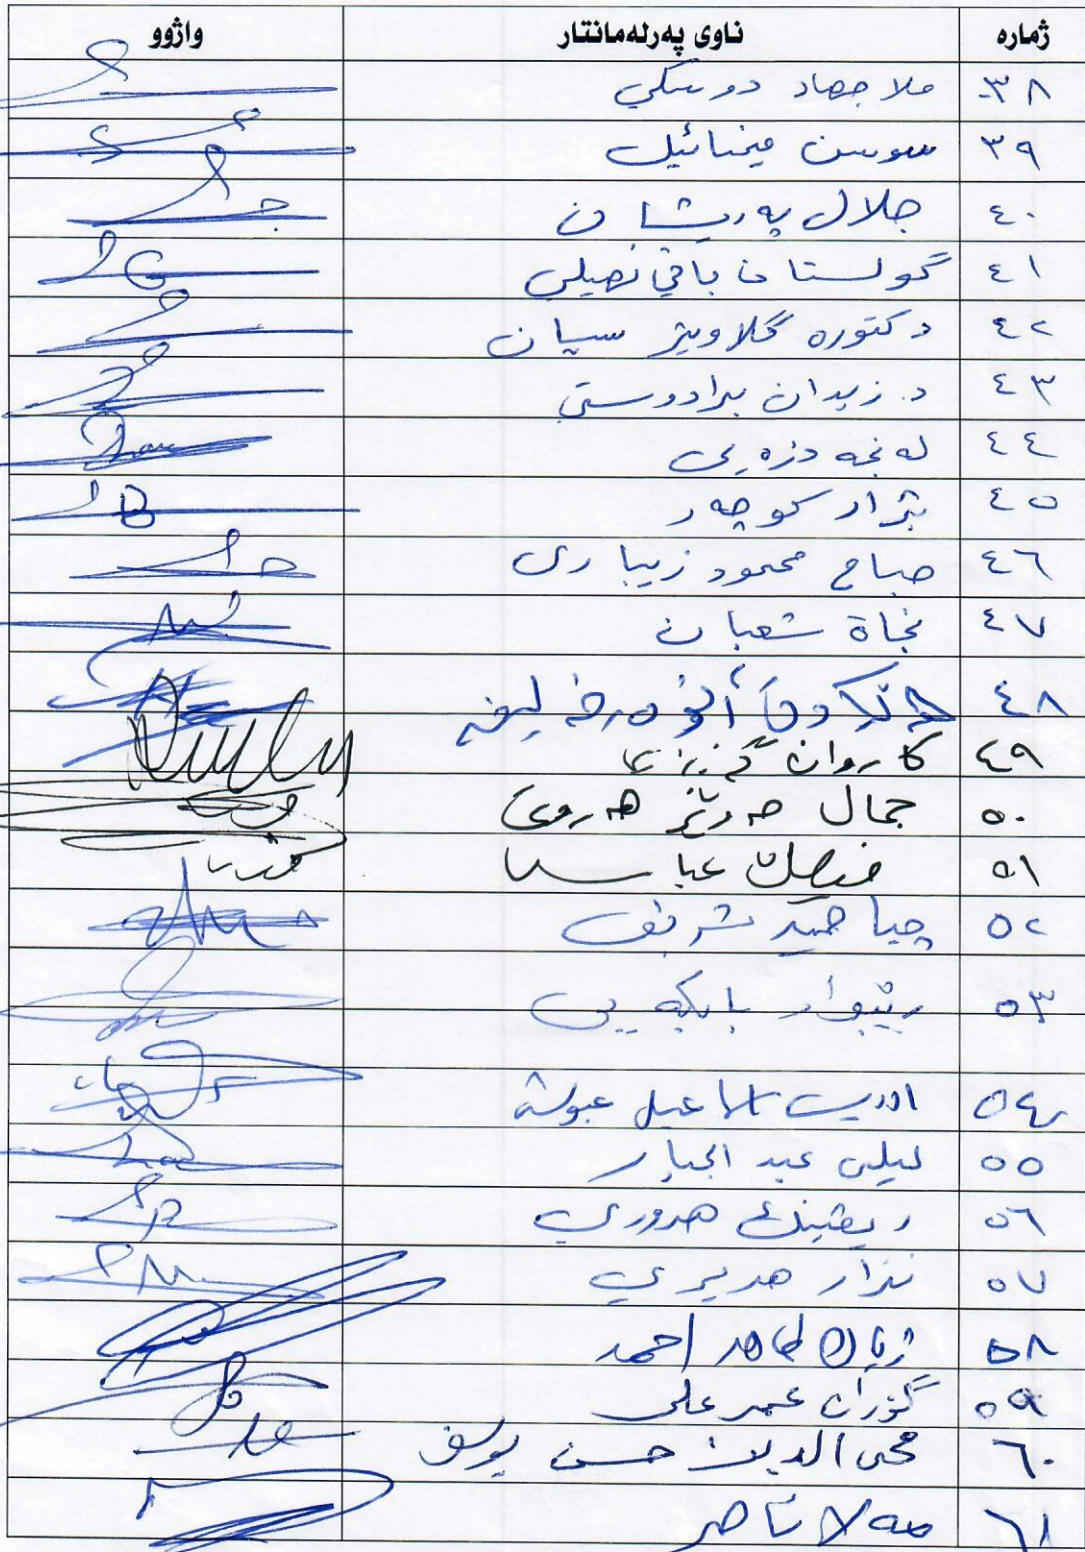 ژمارە ناوی پەرلەمانتار واژوو
٣٨ ملا جهاد دوسكي
٣٩ سوسن ميخائيل
٤٠ جلال پەریشان
٤١ گولستان باقي
٤٢ دكتوره گلاويژ سپان
٤٣ د. زيدان برادوستي
٤٤ لەنجە دزەیی
٤٥ بژار كوچەر
٤٦ صباح محمود زيباری
٤٧ نجاة شعبان
٤٨
٤٩ كاروان گەزنەیی
٥٠ جمال
٥١ فيصل عباس
٥٢ چيا حميد شريف
٥٣ رێبوار بابكەیی
٥٤ ادريس اسماعيل
٥٥ ليلى عبد الجبار
٥٦ ريڤينگ هروري
٥٧ نزار
٥٨ ژيان طاهر احمد
٥٩ گۆران عمر علی
٦٠ محی الدین حسن یوسف
٦١ مەلا ناصر